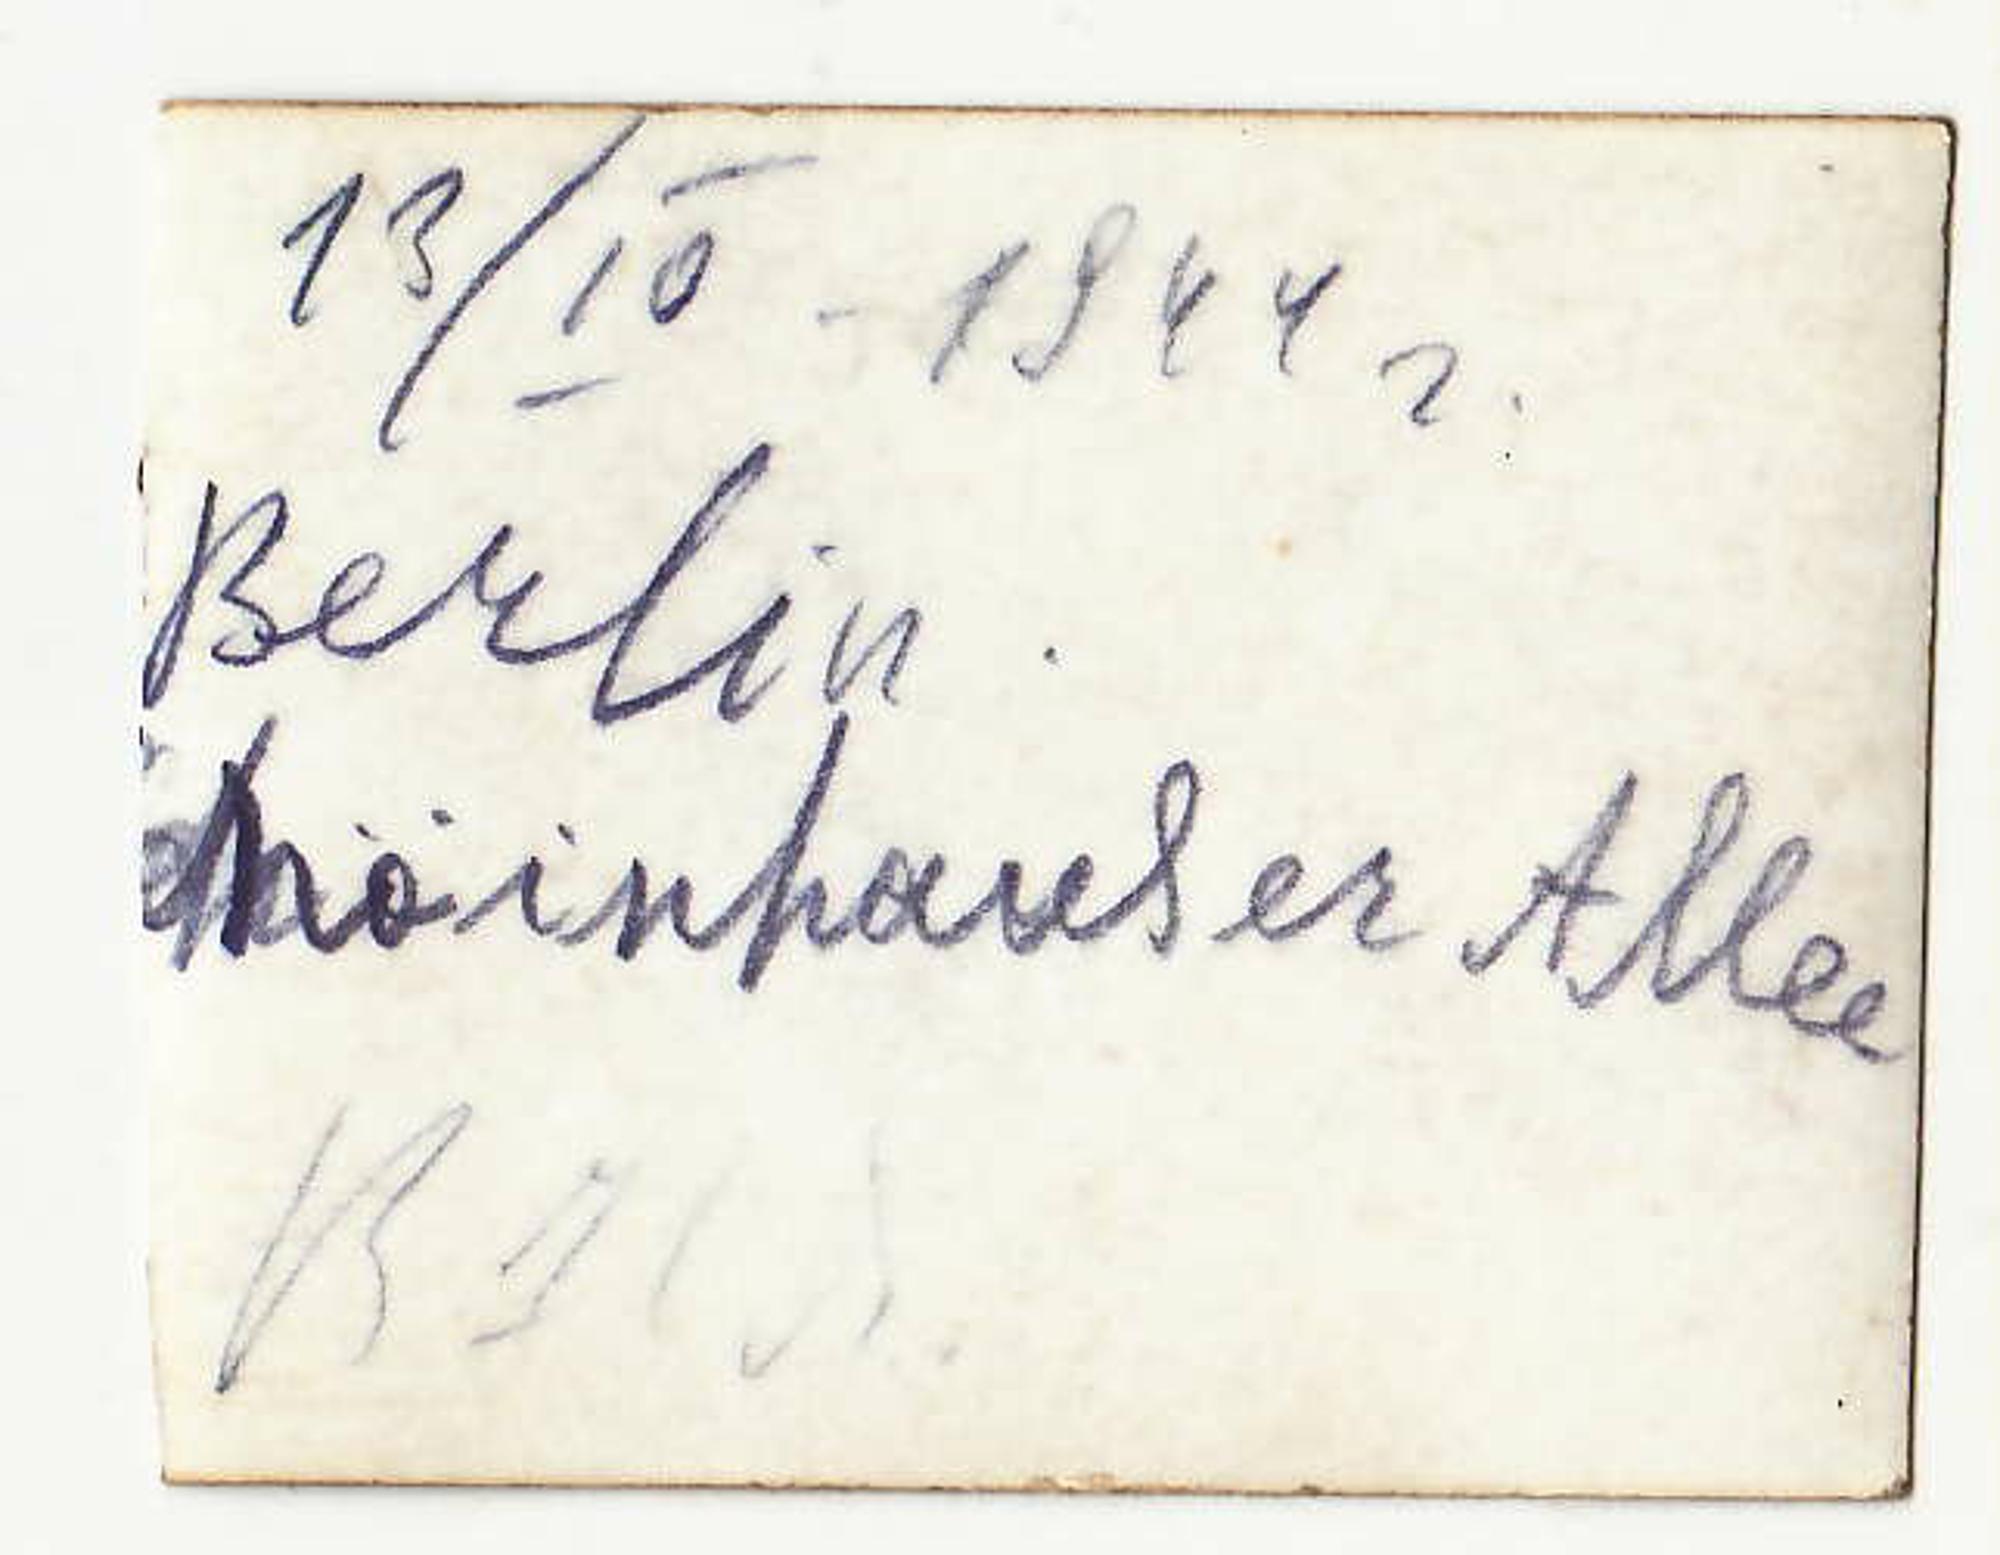 13/10 - 1944 г.
Berlin.
chöinhauser Allee